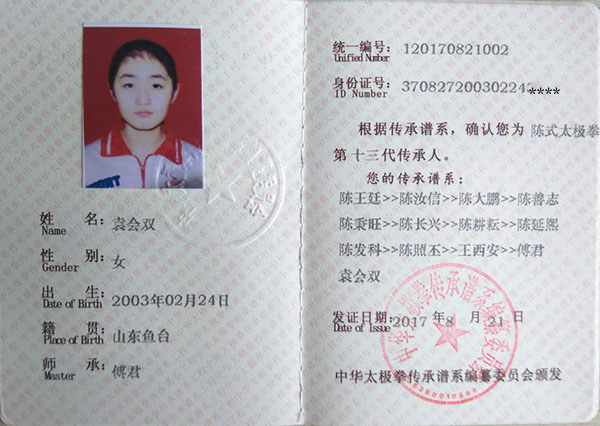 姓 名：袁会双
Name
性 别：女
Gender
出 生：2003年02月24日
Date of Birth
籍 贯：山东鱼台
Place of Birth
师 承：傅君
Master
统一编号：120170821002
Unified Number
身份证号：37082720030224****
ID Number
根据传承谱系，确认您为 陈式太极拳
第 十三代传承人。
您的传承谱系：
陈王廷>>陈汝信>>陈大鹏>>陈善志
陈秉旺>>陈长兴>>陈耕耘>>陈延熙
陈发科>>陈照丕>>王西安>>傅君
袁会双
发证日期：2017 年8 月21日
Date of Issue
中华太极拳传承谱系编纂委员会颁发